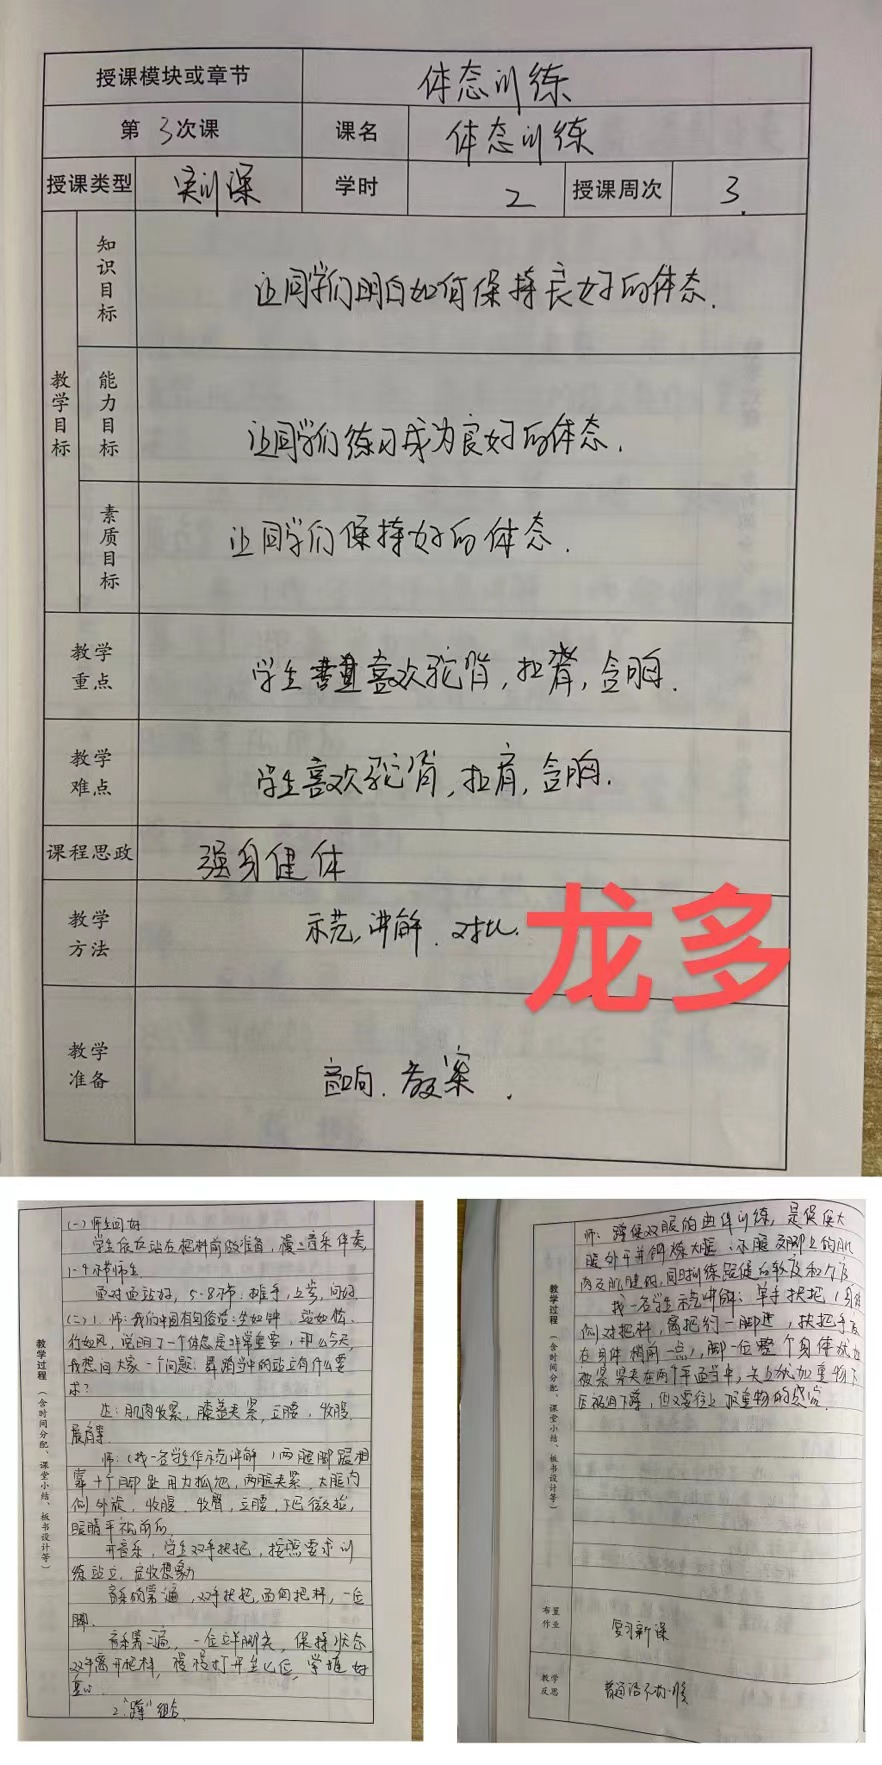 授课模块或章节 体态训练
第 3 次课 课名 体态训练
授课类型 实训课 学时 2 授课周次 3.
教学目标
知识目标 让同学们明白如何保持良好的体态.
能力目标 让同学们练习成为良好的体态.
素质目标 让同学们保持好的体态.
教学重点 学生喜欢驼背,扣脊,含胸.
教学难点 学生喜欢驼背,扣肩,含胸.
课程思政 强身健体
教学方法 示范,讲解.对比.
龙多
教学准备 音响.教案.
教学过程(含时间分配、课堂小结、板书设计等)
(一)师生问好
学生依次站在把杆前做准备,慢二音乐伴奏,
1-4小节师生
面对面站好,5-8小节:推手,上步,问好
(二)1.师:我们中国有句俗语:坐如钟、站如松、
行如风,说明了一个体态是非常重要,那么今天,
我想问大家一个问题:舞蹈当中的站立有什么要
求?
生:肌肉收紧,膝盖夹紧,立腰,收腹,
展肩等.
师:(找一名学生作示范讲解)两腿脚跟相
靠十个脚趾用力抓地,两腿夹紧,大腿内
侧外旋,收腹,收臀,立腰,下巴微抬,
眼睛平视前方.
开音乐,学生双手扶把,按照要求训
练站立
音乐的第一遍,双手扶把,面向把杆,一位
脚.
音乐第二遍,一位立半脚尖,保持状态
双手离开把杆,慢慢打开至七位,掌握好
重心
2."蹲"组合.
教学过程(含时间分配、课堂小结、板书设计等)
师:蹲是双腿的曲伸训练,是保使大
腿外开并锻炼大腿、小腿及脚上的肌
肉及肌腱的,同时训练跟腱的软度和力度
找一名学生示范讲解:单手扶把(身体
侧对把杆,离把约一脚远,扶把手放
在身体稍前一点),脚一位整个身体犹如
被紧紧夹在两个平面当中,头上犹如重物下
压被迫下蹲,但又要往上顶重物的感觉.
布置作业 复习新课
教学反思 普通话不太顺